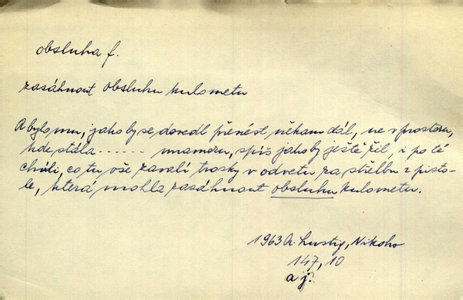 obsluha f.
zasáhnout obsluhu kulometu
A bylo mu, jako by se dovedl přenést někam dál, ne v prostoru,
kde stála ...... , spíš jako by ještě žil i po té
chvíli, co tu vše zavalí trosky v odvetu za střelbu z pisto-
le, která mohla zasáhnout obsluhu kulometu.
1963 A. Lustig, Nikoho
147, 10
a j.